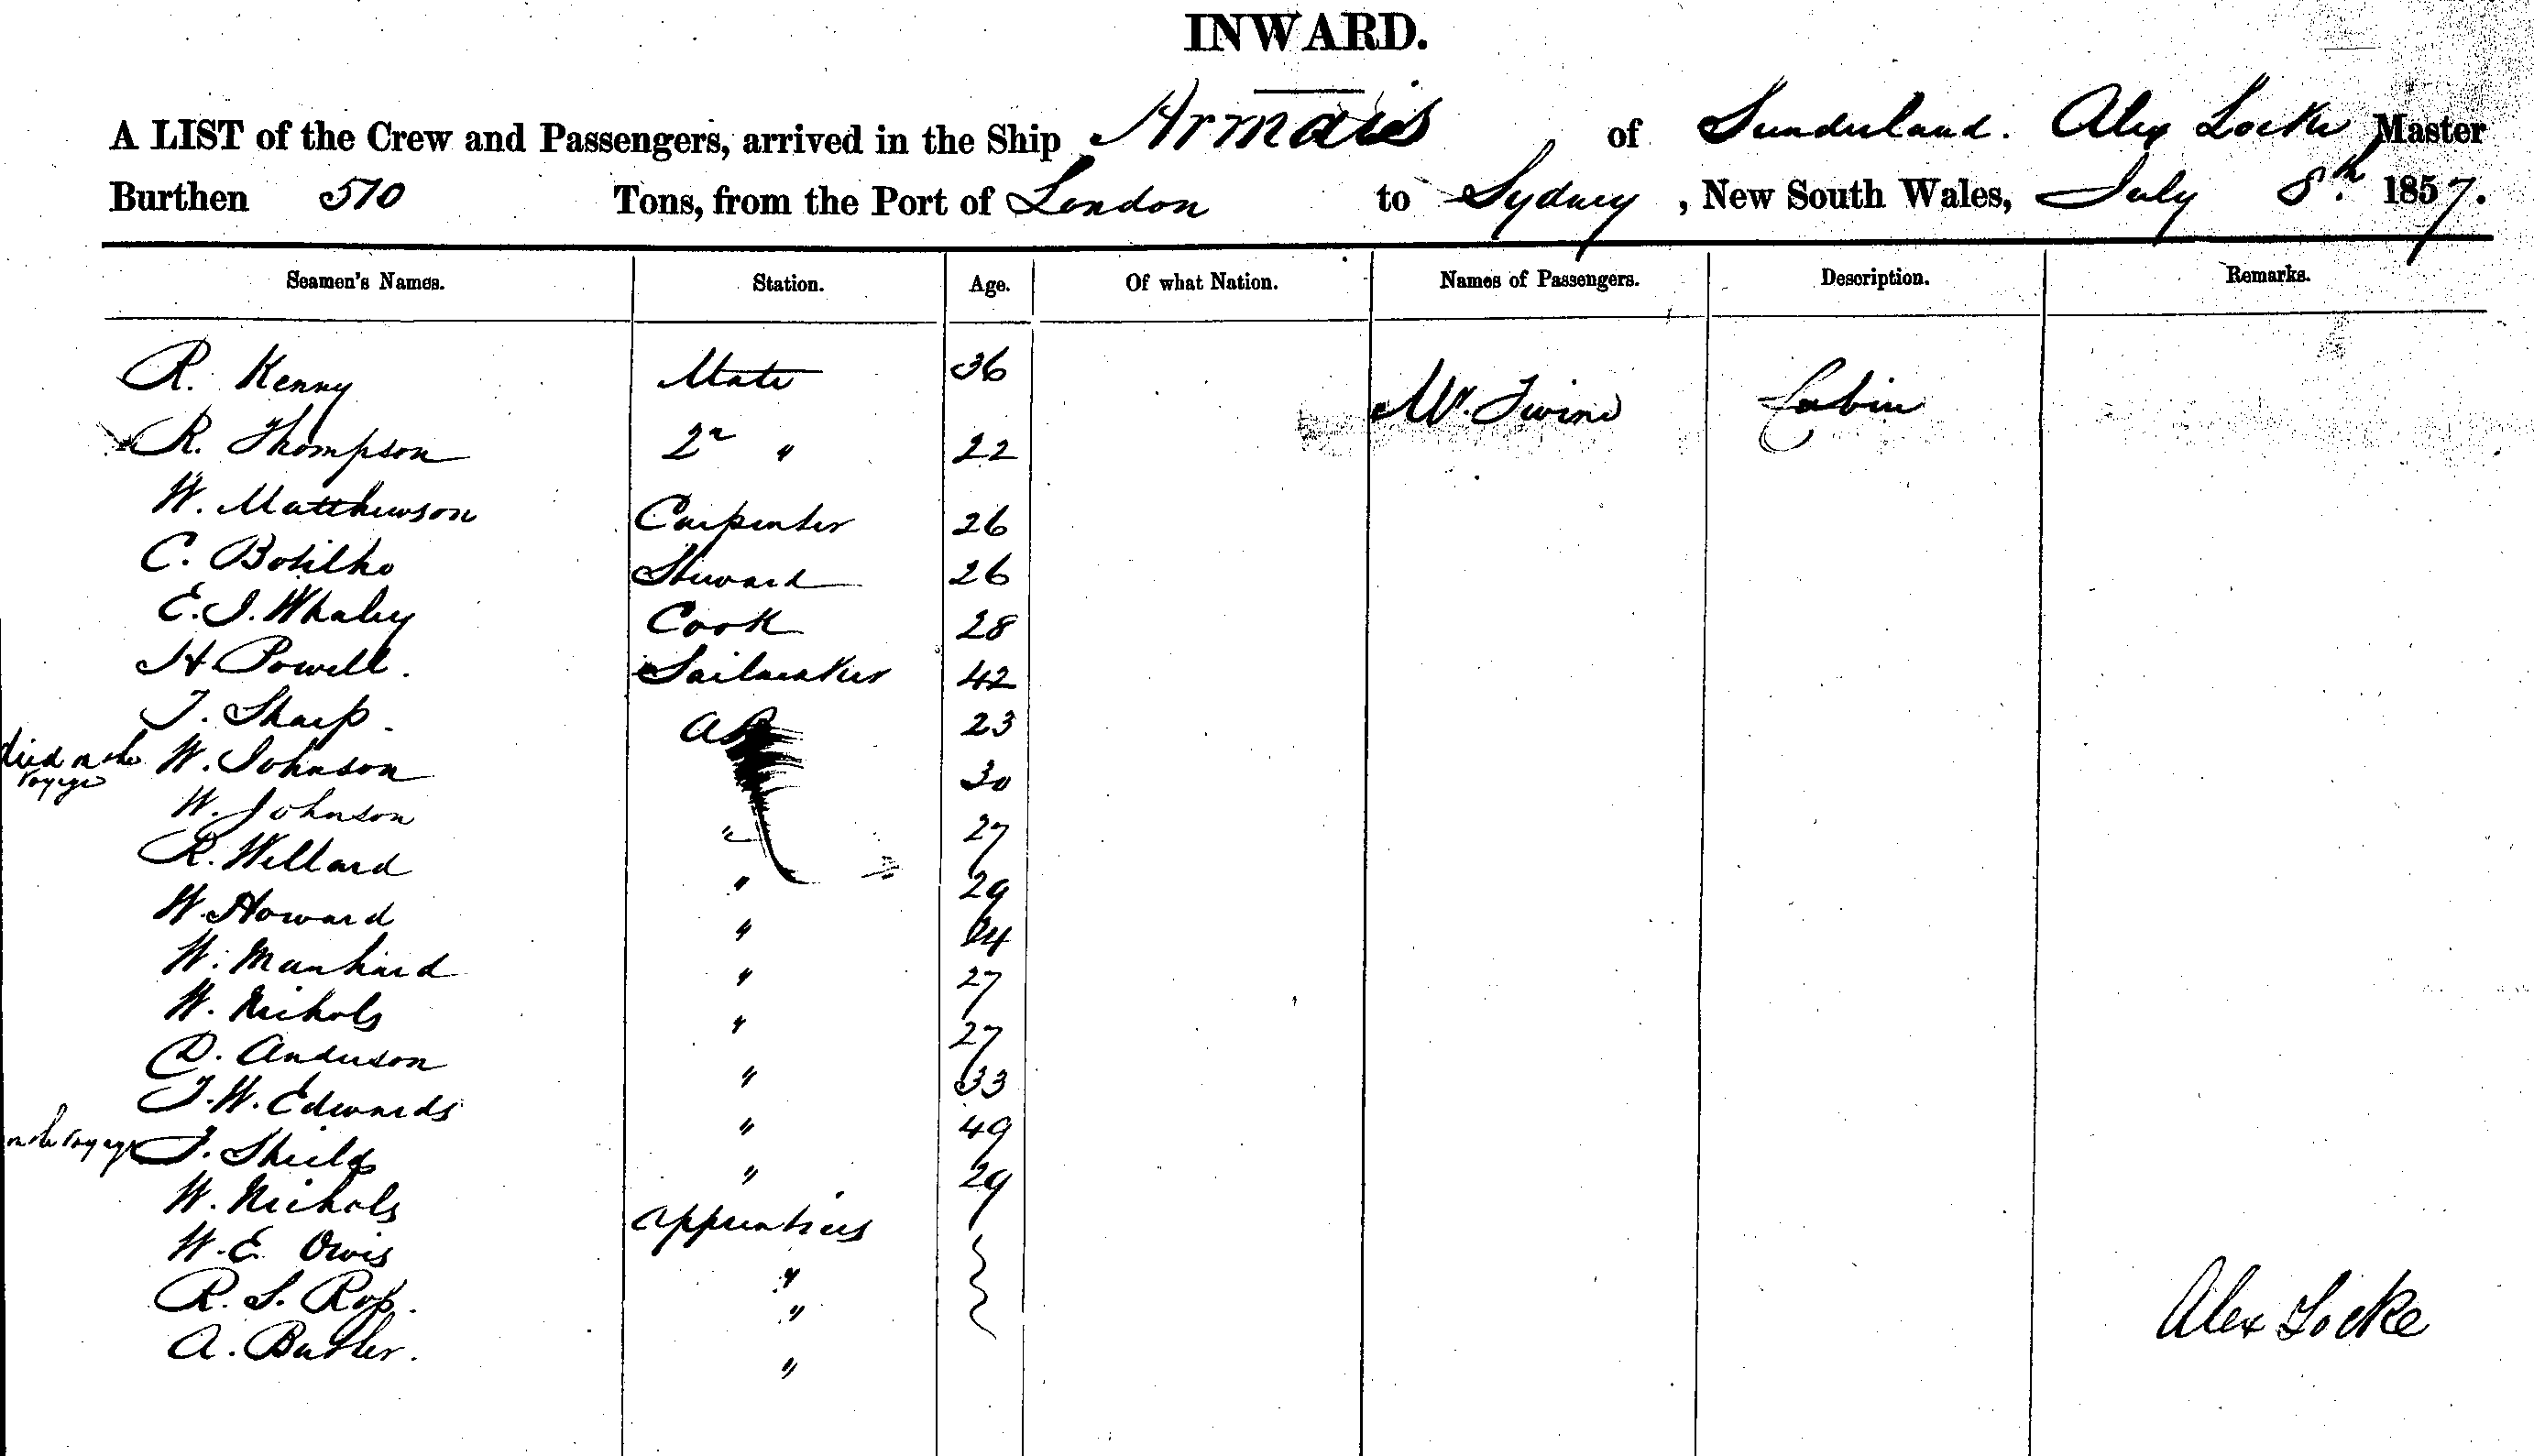 INWARD.
A LIST of the Crew and Passengers, arrived in the Ship Armais of Sunderland. Alex Locke Master
Burthen 510 Tons, from the Port of London to Sydney, New South Wales, July 8th 1857.
Seamen's Names. Station. Age. Of what Nation. Names of Passengers. Description. Remarks.
R. Kenny Mate 36 Mr. Cabin
R. Thompson 2n " 22
W. Matthewson Carpenter 26
C. Botilho Steward 26
E. J. Whaley Cook 28
H Powell. Sailmaker 42
T. Sharp. AB 23
died on the voyage W. Johnson 30
W. Johnson " 27
R. Willard " 29
W. Howard " 24
W. " 27
W. Nichols " 27
D. Anderson " 33
T. W. Edwards " 49
on the voyage J. Shields " 29
W. Nichols Apprentices
W. E. "
R. S. "
A. Butler. "
Alex Locke